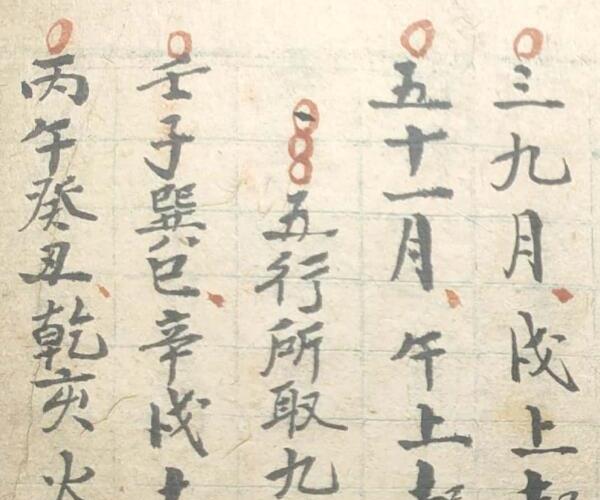 三九月戌上
五十一月午上
五行所取九
壬子巽巳辛戌
丙午癸丑乾亥火